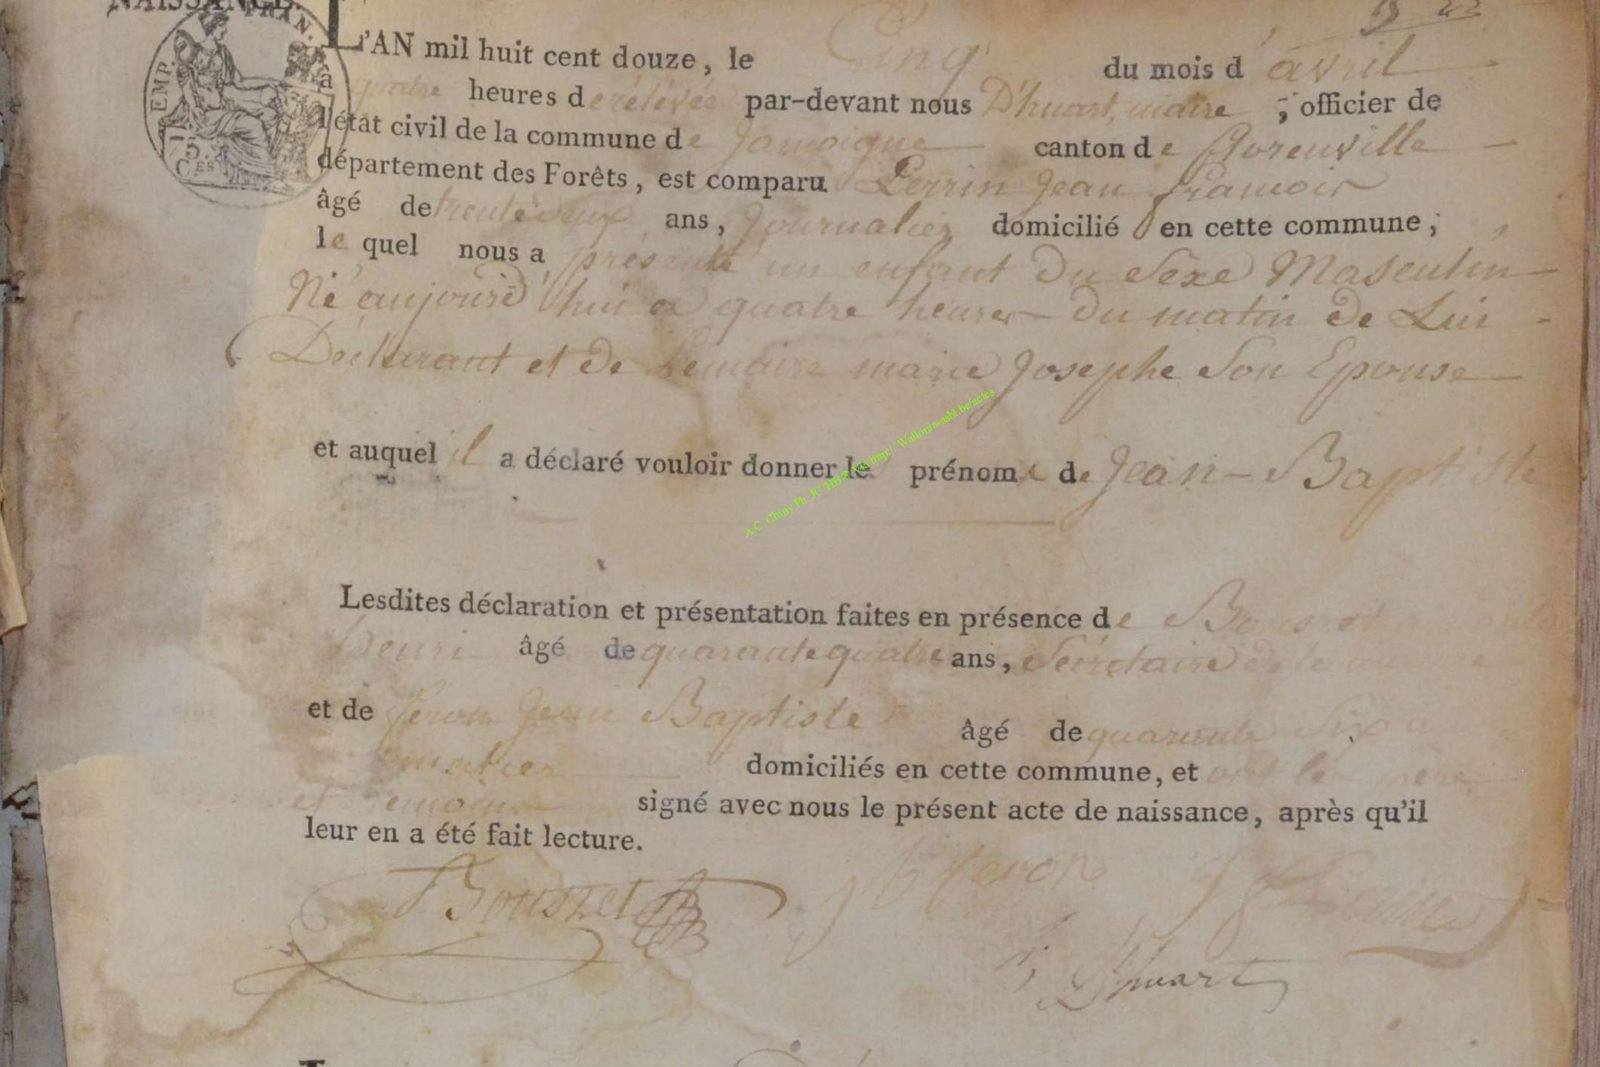 NAISSANCE.
L'AN mil huit cent douze, le Cinq du mois d'avril
EMP. FRAN.
75. CES
à quatre heures de rélévée par-devant nous D'huart, maire, officier de
l'état civil de la commune de Jamoigne canton de Florenville
département des Forêts, est comparu Perrin Jean françois
âgé de trente deux ans, Journalier domicilié en cette commune;
le quel nous a présenté un enfant du Sexe Masculin
Né aujourd'hui a quatre heures du matin de Lui
Déclarant et de Lemaire marie Josephe Son Epouse
et auquel il a déclaré vouloir donner les prénoms de Jean-Baptiste
A.C. Chiny Wallonia-asbl.be/actes
Lesdites déclaration et présentation faites en présence de
henri âgé de quarante quatre ans, Sécrétaire de la
et de feron Jean Baptiste âgé de quarante Six
domiciliés en cette commune, et ont les père
et témoins signé avec nous le présent acte de naissance, après qu'il
leur en a été fait lecture.
Bousret J B feron
D'huart